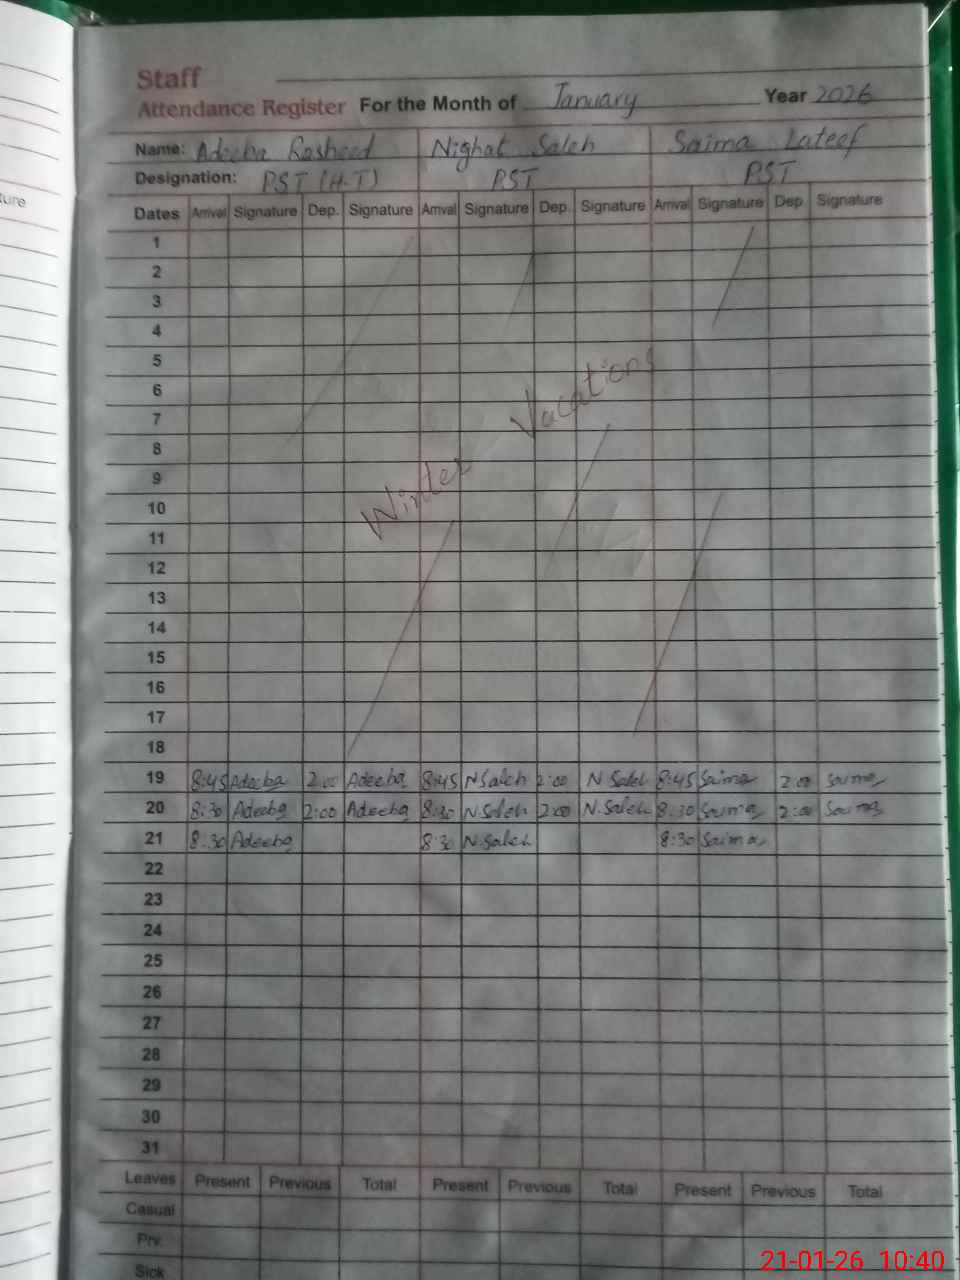 ture
Staff
Attendance Register For the Month of January Year 2026
Name: Adeeba Rasheed Nighat Saleh Saima Lateef
Designation: PST (H.T) PST PST
Dates Arrival Signature Dep. Signature Arrival Signature Dep. Signature Arrival Signature Dep Signature
1
2
3
4
5
6
7
8
9
10
11
12
13
14
15
16
17
18
Winter Vacations
19 8:45 Adeeba 2:00 Adeeba 8:45 N Saleh 2:00 N Saleh 8:45 Saima 2:00 Saima
20 8:30 Adeeba 2:00 Adeeba 8:30 N.Saleh 2:00 N.Saleh 8:30 Saima 2:00 Saima
21 8:30 Adeeba 8:30 N.Saleh 8:30 Saima
22
23
24
25
26
27
28
29
30
31
Leaves Present Previous Total Present Previous Total Present Previous Total
Casual
Prv.
Sick
21-01-26 10:40